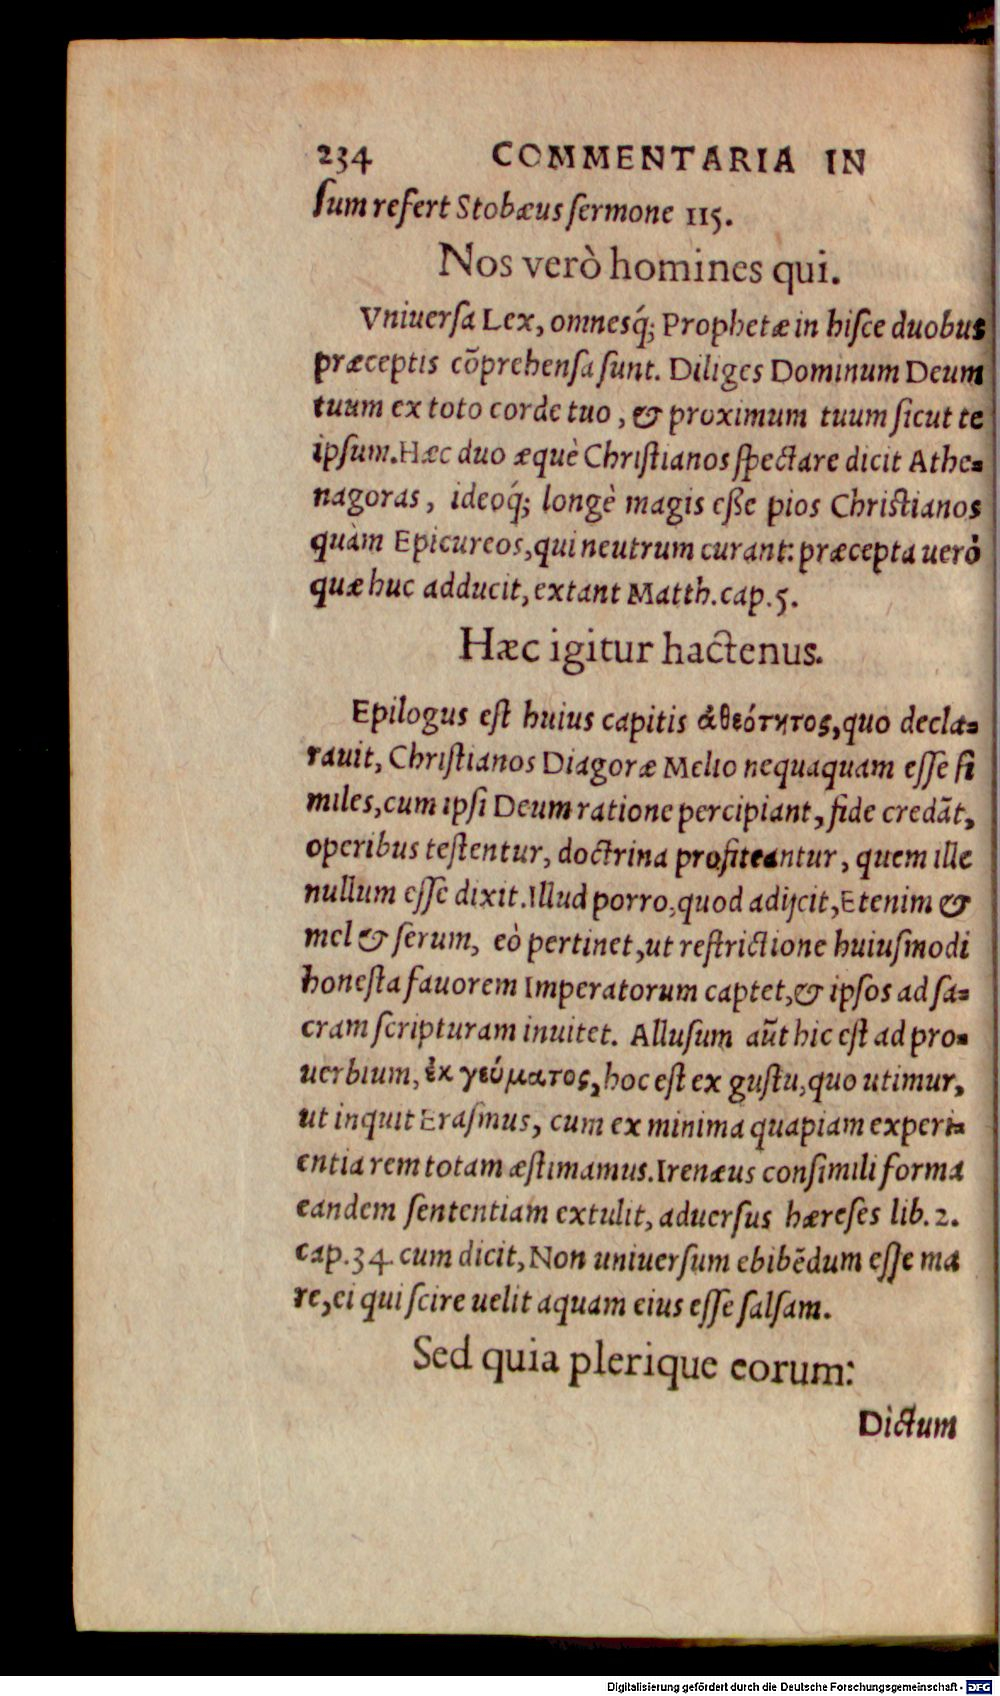 234 COMMENTARIA IN
ſum refert Stobæus ſermone 115.
Nos verò homines qui.
Vniuerſa Lex, omnesq́; Prophetæ in hiſce duobus
præceptis cõprehenſa ſunt. Diliges Dominum Deum
tuum ex toto corde tuo, & proximum tuum ſicut te
ipſum. Hæc duo æquè Chriſtianos ſpectare dicit Athe-
nagoras, ideoq́; longè magis eſſe pios Chriſtianos
quàm Epicureos, qui neutrum curant: præcepta uerò
quæ huc adducit, extant Matth. cap. 5.
Hæc igitur hactenus.
Epilogus eſt huius capitis ἀθεότητος, quo decla-
rauit, Chriſtianos Diagoræ Melio nequaquam eſſe ſi
miles, cum ipſi Deum ratione percipiant, fide credãt,
operibus teſtentur, doctrina profiteantur, quem ille
nullum eſſe dixit. Illud porro, quod adijcit, Etenim &
mel & ſerum, eò pertinet, ut reſtrictione huiuſmodi
honeſta fauorem Imperatorum captet, & ipſos ad ſa-
cram ſcripturam inuitet. Alluſum aũt hic eſt ad pro-
uerbium, ἐκ γεύματος, hoc eſt ex guſtu, quo utimur,
ut inquit Eraſmus, cum ex minima quapiam experi-
entia rem totam æſtimamus. Irenæus conſimili forma
eandem ſententiam extulit, aduerſus hæreſes lib. 2.
cap. 34. cum dicit, Non uniuerſum ebibẽdum eſſe ma
re, ei qui ſcire uelit aquam eius eſſe ſalſam.
Sed quia plerique eorum:
Dictum
Digitalisierung gefördert durch die Deutsche Forschungsgemeinschaft - DFG